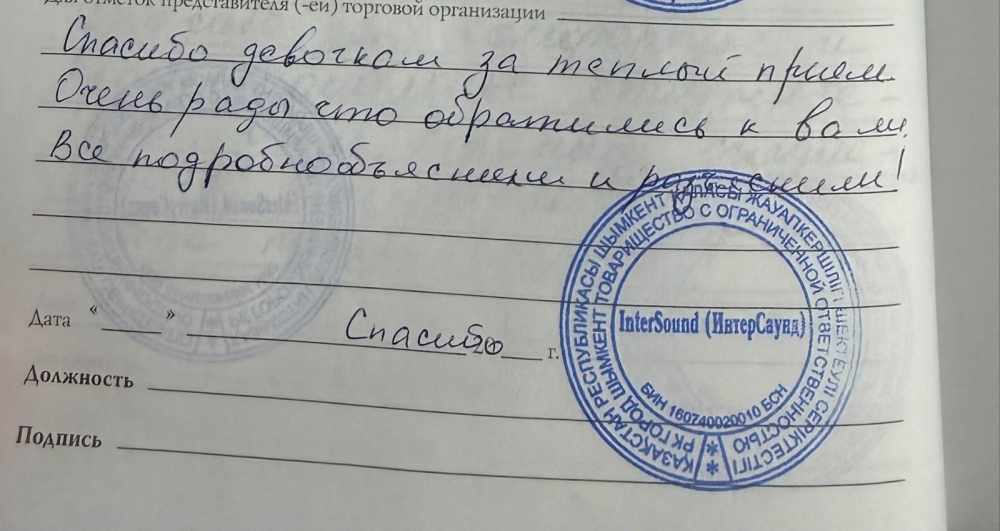 Для отметок представителя (-ей) торговой организации
Спасибо девочкам за теплый прием
Очень рады что обратились к вам.
Все подробно объяснили и разъяснили!
Дата " " Спасибо 20 г.
Должность
Подпись
ҚАЗАҚСТАН РЕСПУБЛИКАСЫ ШЫМКЕНТ ҚАЛАСЫ ЖАУАПКЕРШІЛІГІ ШЕКТЕУЛІ СЕРІКТЕСТІГІ
РК ГОРОД ШЫМКЕНТ ТОВАРИЩЕСТВО С ОГРАНИЧЕННОЙ ОТВЕТСТВЕННОСТЬЮ
InterSound (ИнтерСаунд)
БИН 160740020010 БСН